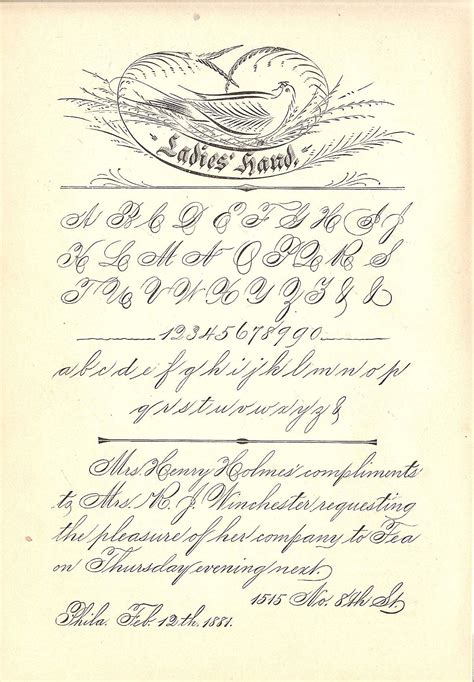 Ladies' Hand.
A B C D E F G H I J
K L M N O P Q R S
T U V W X Y Z & &
1234567890
a b c d e f g h i j k l m n o p
q r s t u v w x y z &
Mrs. Henry Holmes' compliments
to Mrs. R. J. Winchester requesting
the pleasure of her company to Tea
on Thursday evening next.
1515 No. 8th St.
Phila. Feb. 12th. 1881.